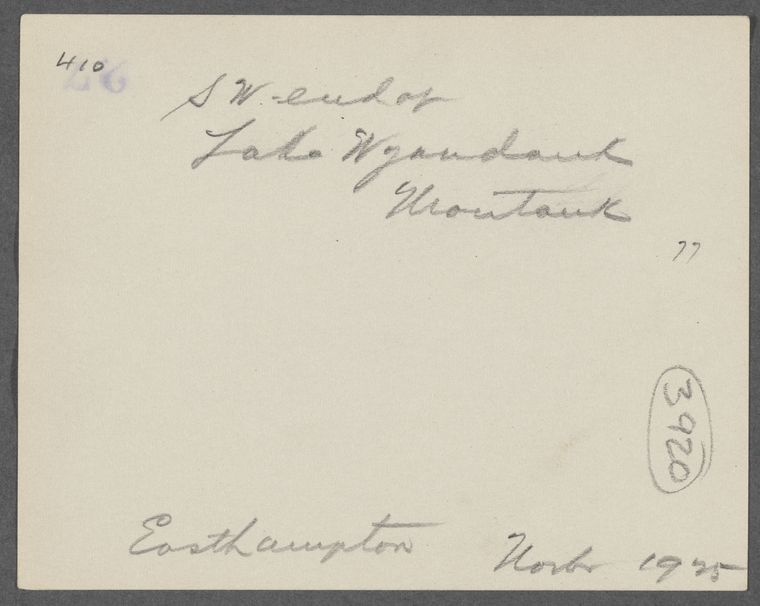 410
S W. end of
Lake Wyandank
Montauk
77
3920
Easthampton Novbr 1925